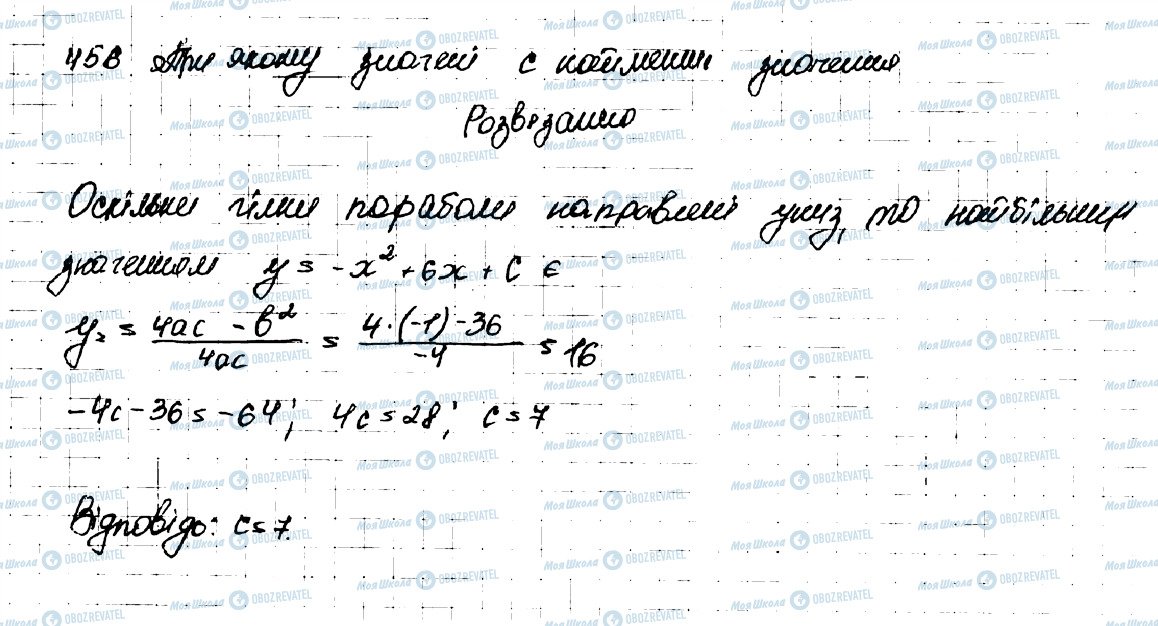 458 При якому значені c найменше значення
Розвязання
Оскільки гілки параболи направлені униз, то найбільшим
значенням y = -x² + 6x + C є
y₂ = (4ac - b²)/(4ac) = (4·(-1) - 36)/(-4) = 16
-4c - 36 = -64; 4c = 28; c = 7
Відповідь: c = 7